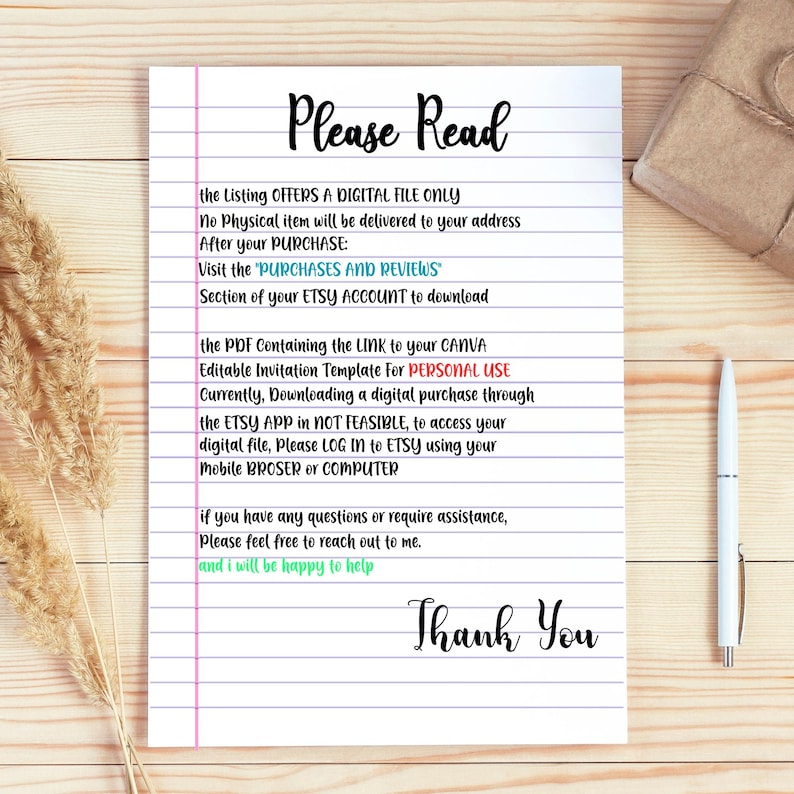 Please Read
the Listing OFFERS A DIGITAL FILE ONLY
No Physical item will be delivered to your address
After your PURCHASE:
Visit the "PURCHASES AND REVIEWS"
Section of your ETSY ACCOUNT to download
the PDF Containing the LINK to your CANVA
Editable Invitation Template For PERSONAL USE
Currently, Downloading a digital purchase through
the ETSY APP in NOT FEASIBLE, to access your
digital file, Please LOG IN to ETSY using your
Mobile BROSER or COMPUTER
if you have any questions or require assistance,
Please feel free to reach out to me.
and i will be happy to help
Thank You